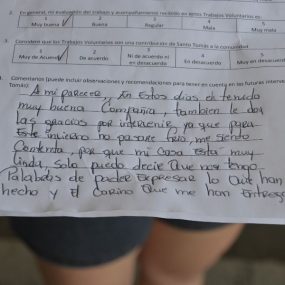 2. En general, mi evaluación del trabajo y acompañamiento recibido en estos Trabajos Voluntarios es:
1 2 3 4 5
Muy buena Buena Regular Mala Muy mala
3. Considero que los Trabajos Voluntarios son una contribución de Santo Tomás a la comunidad
1 2 3 4 5
Muy de Acuerdo De acuerdo Ni de acuerdo ni en desacuerdo En desacuerdo Muy en desacuerdo
Comentarios (puede incluir observaciones y recomendaciones para tener en cuenta en las futuras interve
Tomás):
A mi parecer, En Estos dias eh tenido
muy buena Compañia, tambien le doy
las gracias por intervenir, ya que para
Este invierno no pasare frio, me siento
Contenta, por que mi casa Esta muy
linda, solo puedo decir Que no tengo
Palabras de poder Expresar lo Que han
hecho y El Cariño Que me han Entrega